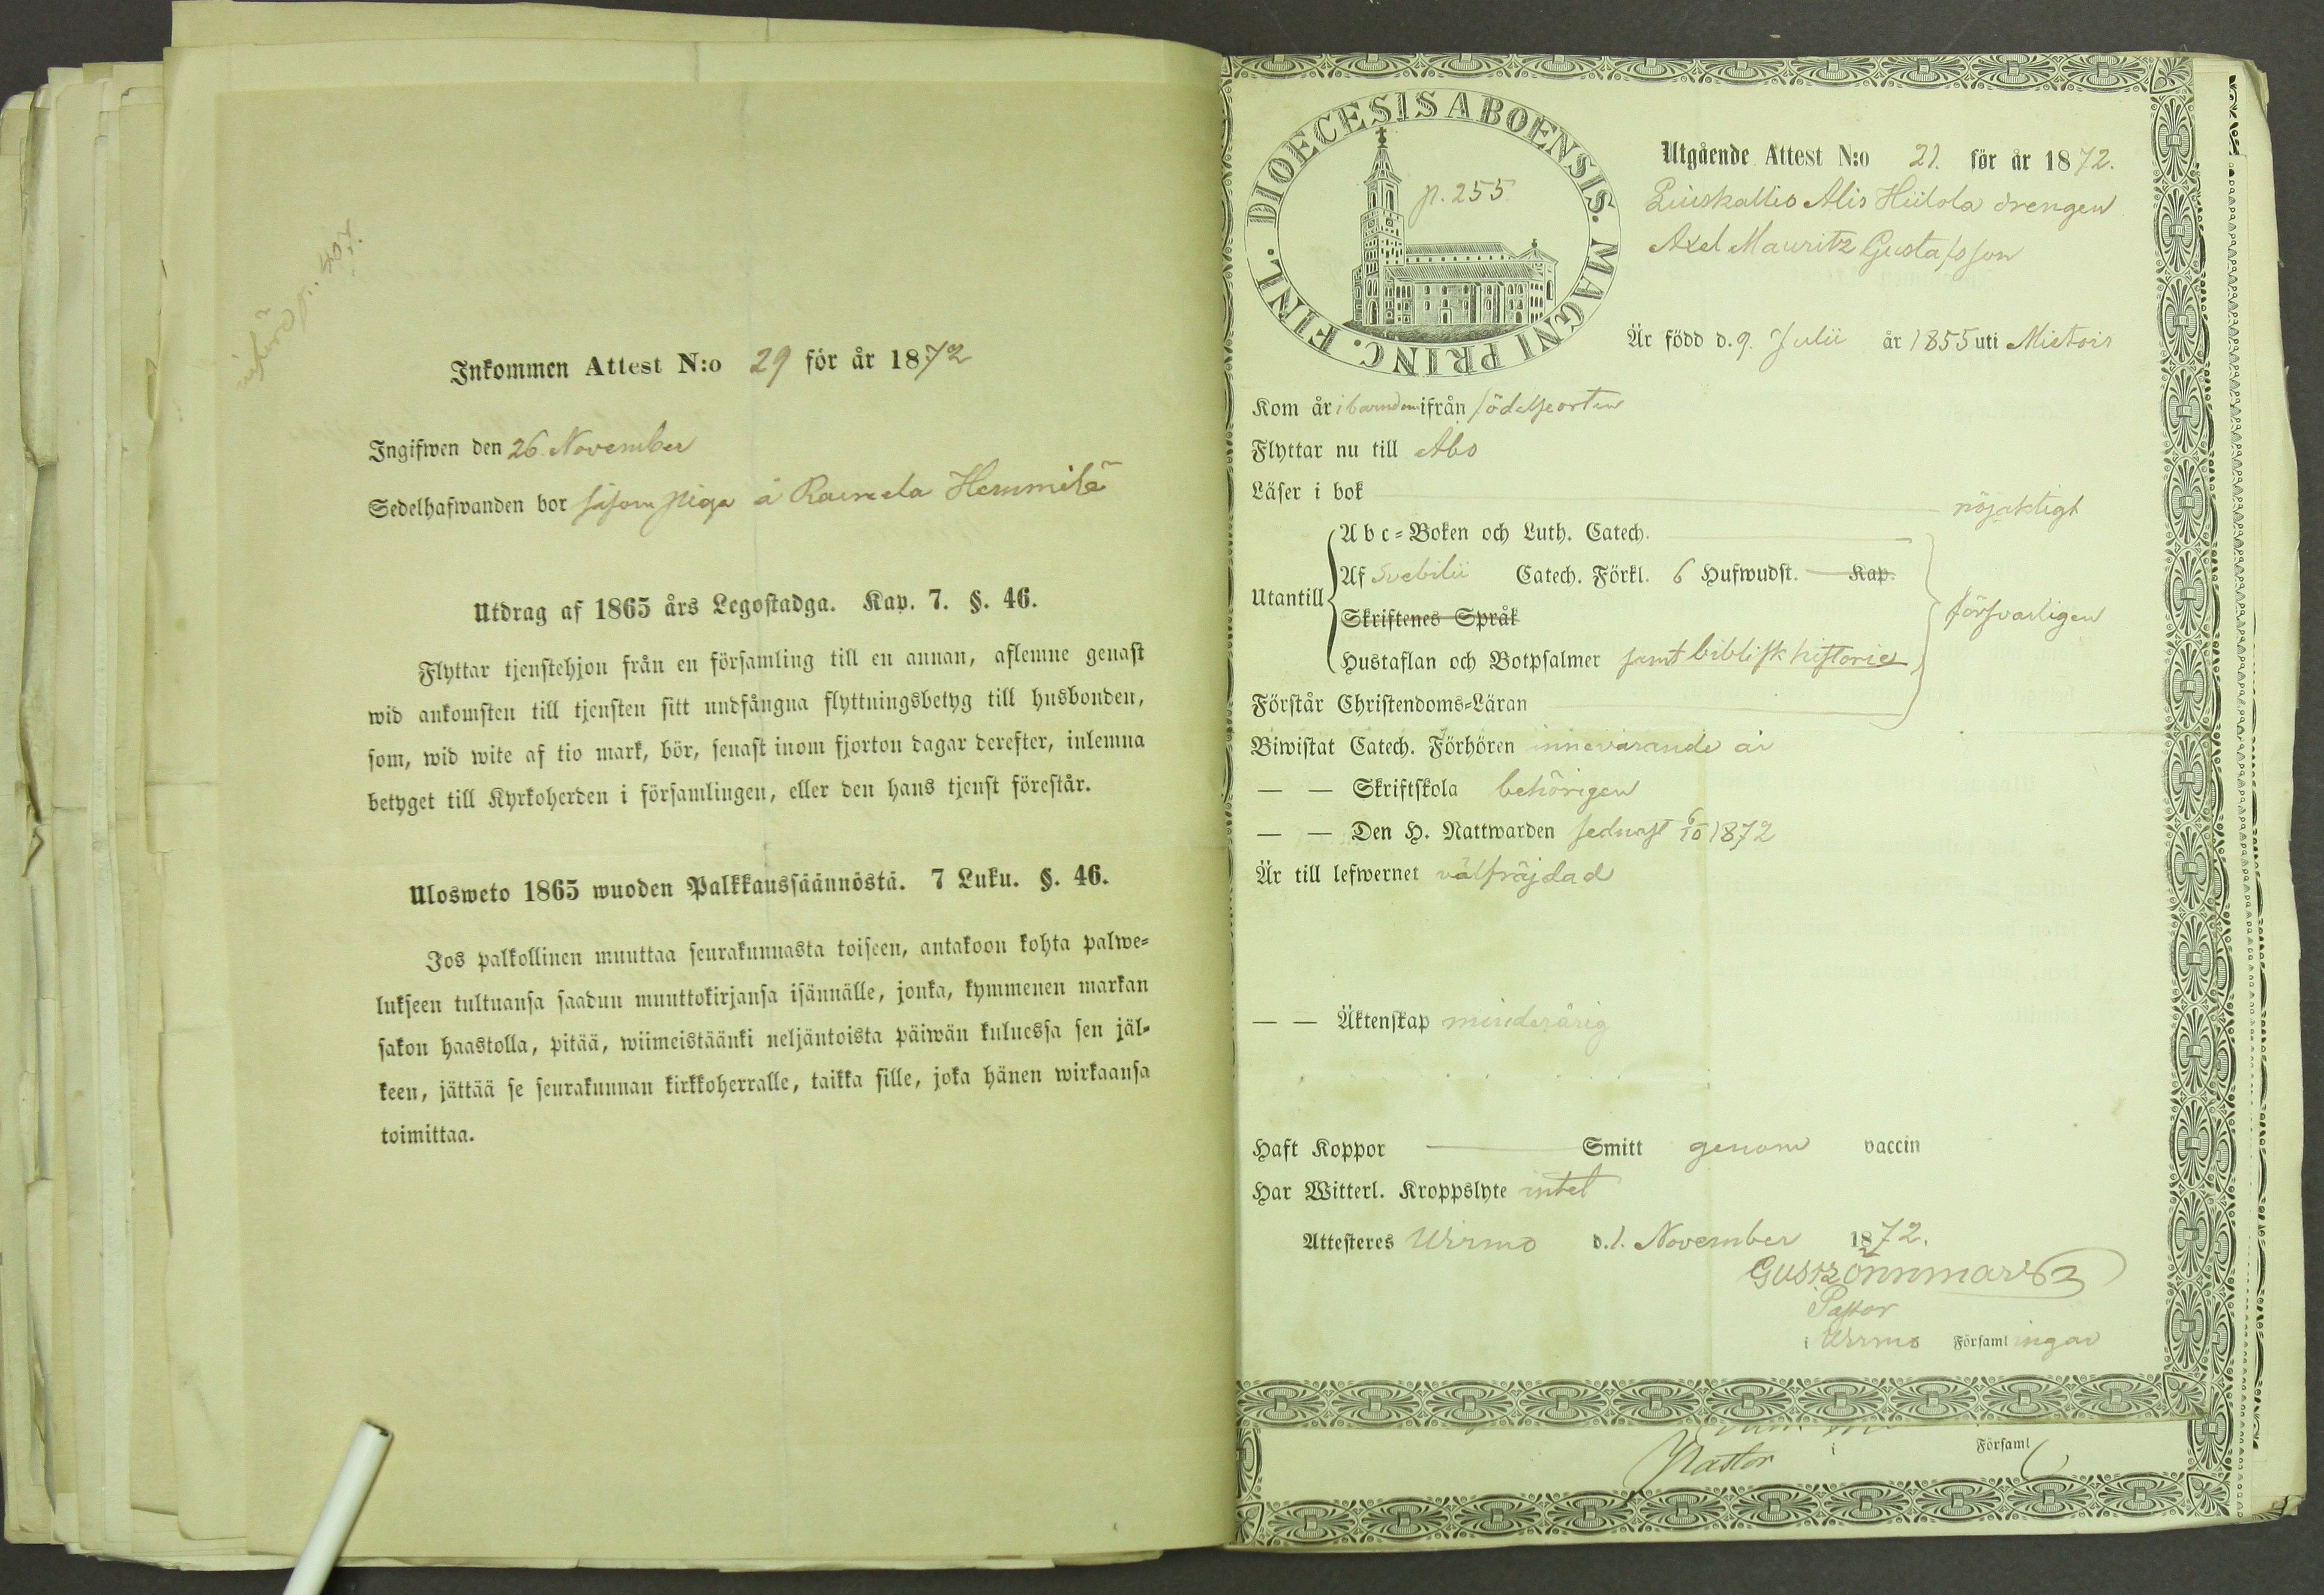 p. 407.
Inkommen Attest N:o 29 för år 1872
Ingifwen den 26 November
Sedelhafwanden bor såsom piga å Raimela Hemmilä
Utdrag af 1865 års Legostadga. Kap. 7. §. 46.
Flyttar tjenstehjon från en församling till en annan, aflemne genast
wid ankomsten till tjensten sitt undfångna flyttningsbetyg till husbonden,
som, wid wite af tio mark, bör, senast inom fjorton dagar derefter, inlemna
betyget till Kyrkoherden i församlingen, eller den hans tjenst förestår.
Ulosweto 1865 wuoden Palkkaussäännöstä. 7 Luku. §. 46.
Jos palkollinen muuttaa seurakunnasta toiseen, antakoon kohta palwe=
lukseen tultuansa saadun muuttokirjansa isännälle, jonka, kymmenen markan
sakon haastolla, pitää, wiimeistäänki neljäntoista päiwän kuluessa sen jäl=
keen, jättää se seurakunnan kirkkoherralle, taikka sille, joka hänen wirkaansa
toimittaa.
DIOECESIS ABOENSIS. MAGNI PRINC. FINL.
p. 255
Utgående Attest N:o 21. för år 1872.
Puiskallio Alis Hiilola drengen
Axel Mauritz Gustafsson
Är född d. 9. Julii år 1855 uti Mietois
Kom år i barndom ifrån födelseorten
Flyttar nu till Abo
Läser i bok nöjaktigt
Utantill
Abc=Boken och Luth. Catech.
Af Svebilii Catech. Förkl. 6 Hufwudst. Kap.
Skriftenes Språk
Hustaflan och Botpsalmer samt biblisk historie
försvarligen
Förstår Christendoms=Läran
Biwistat Catech. Förhören innevarande år
— — Skriftskola behörigen
— — Den H. Nattwarden sednast 6/10 1872
Är till lefwernet välfräjdad
— — Äktenskap minderårig
Haft Koppor Smitt genom vaccin
Har Witterl. Kroppslyte intet
Attesteres Wirmo d. 1. November 1872.
Pastor
i Wirmo Församlingar
Pastor i Församl